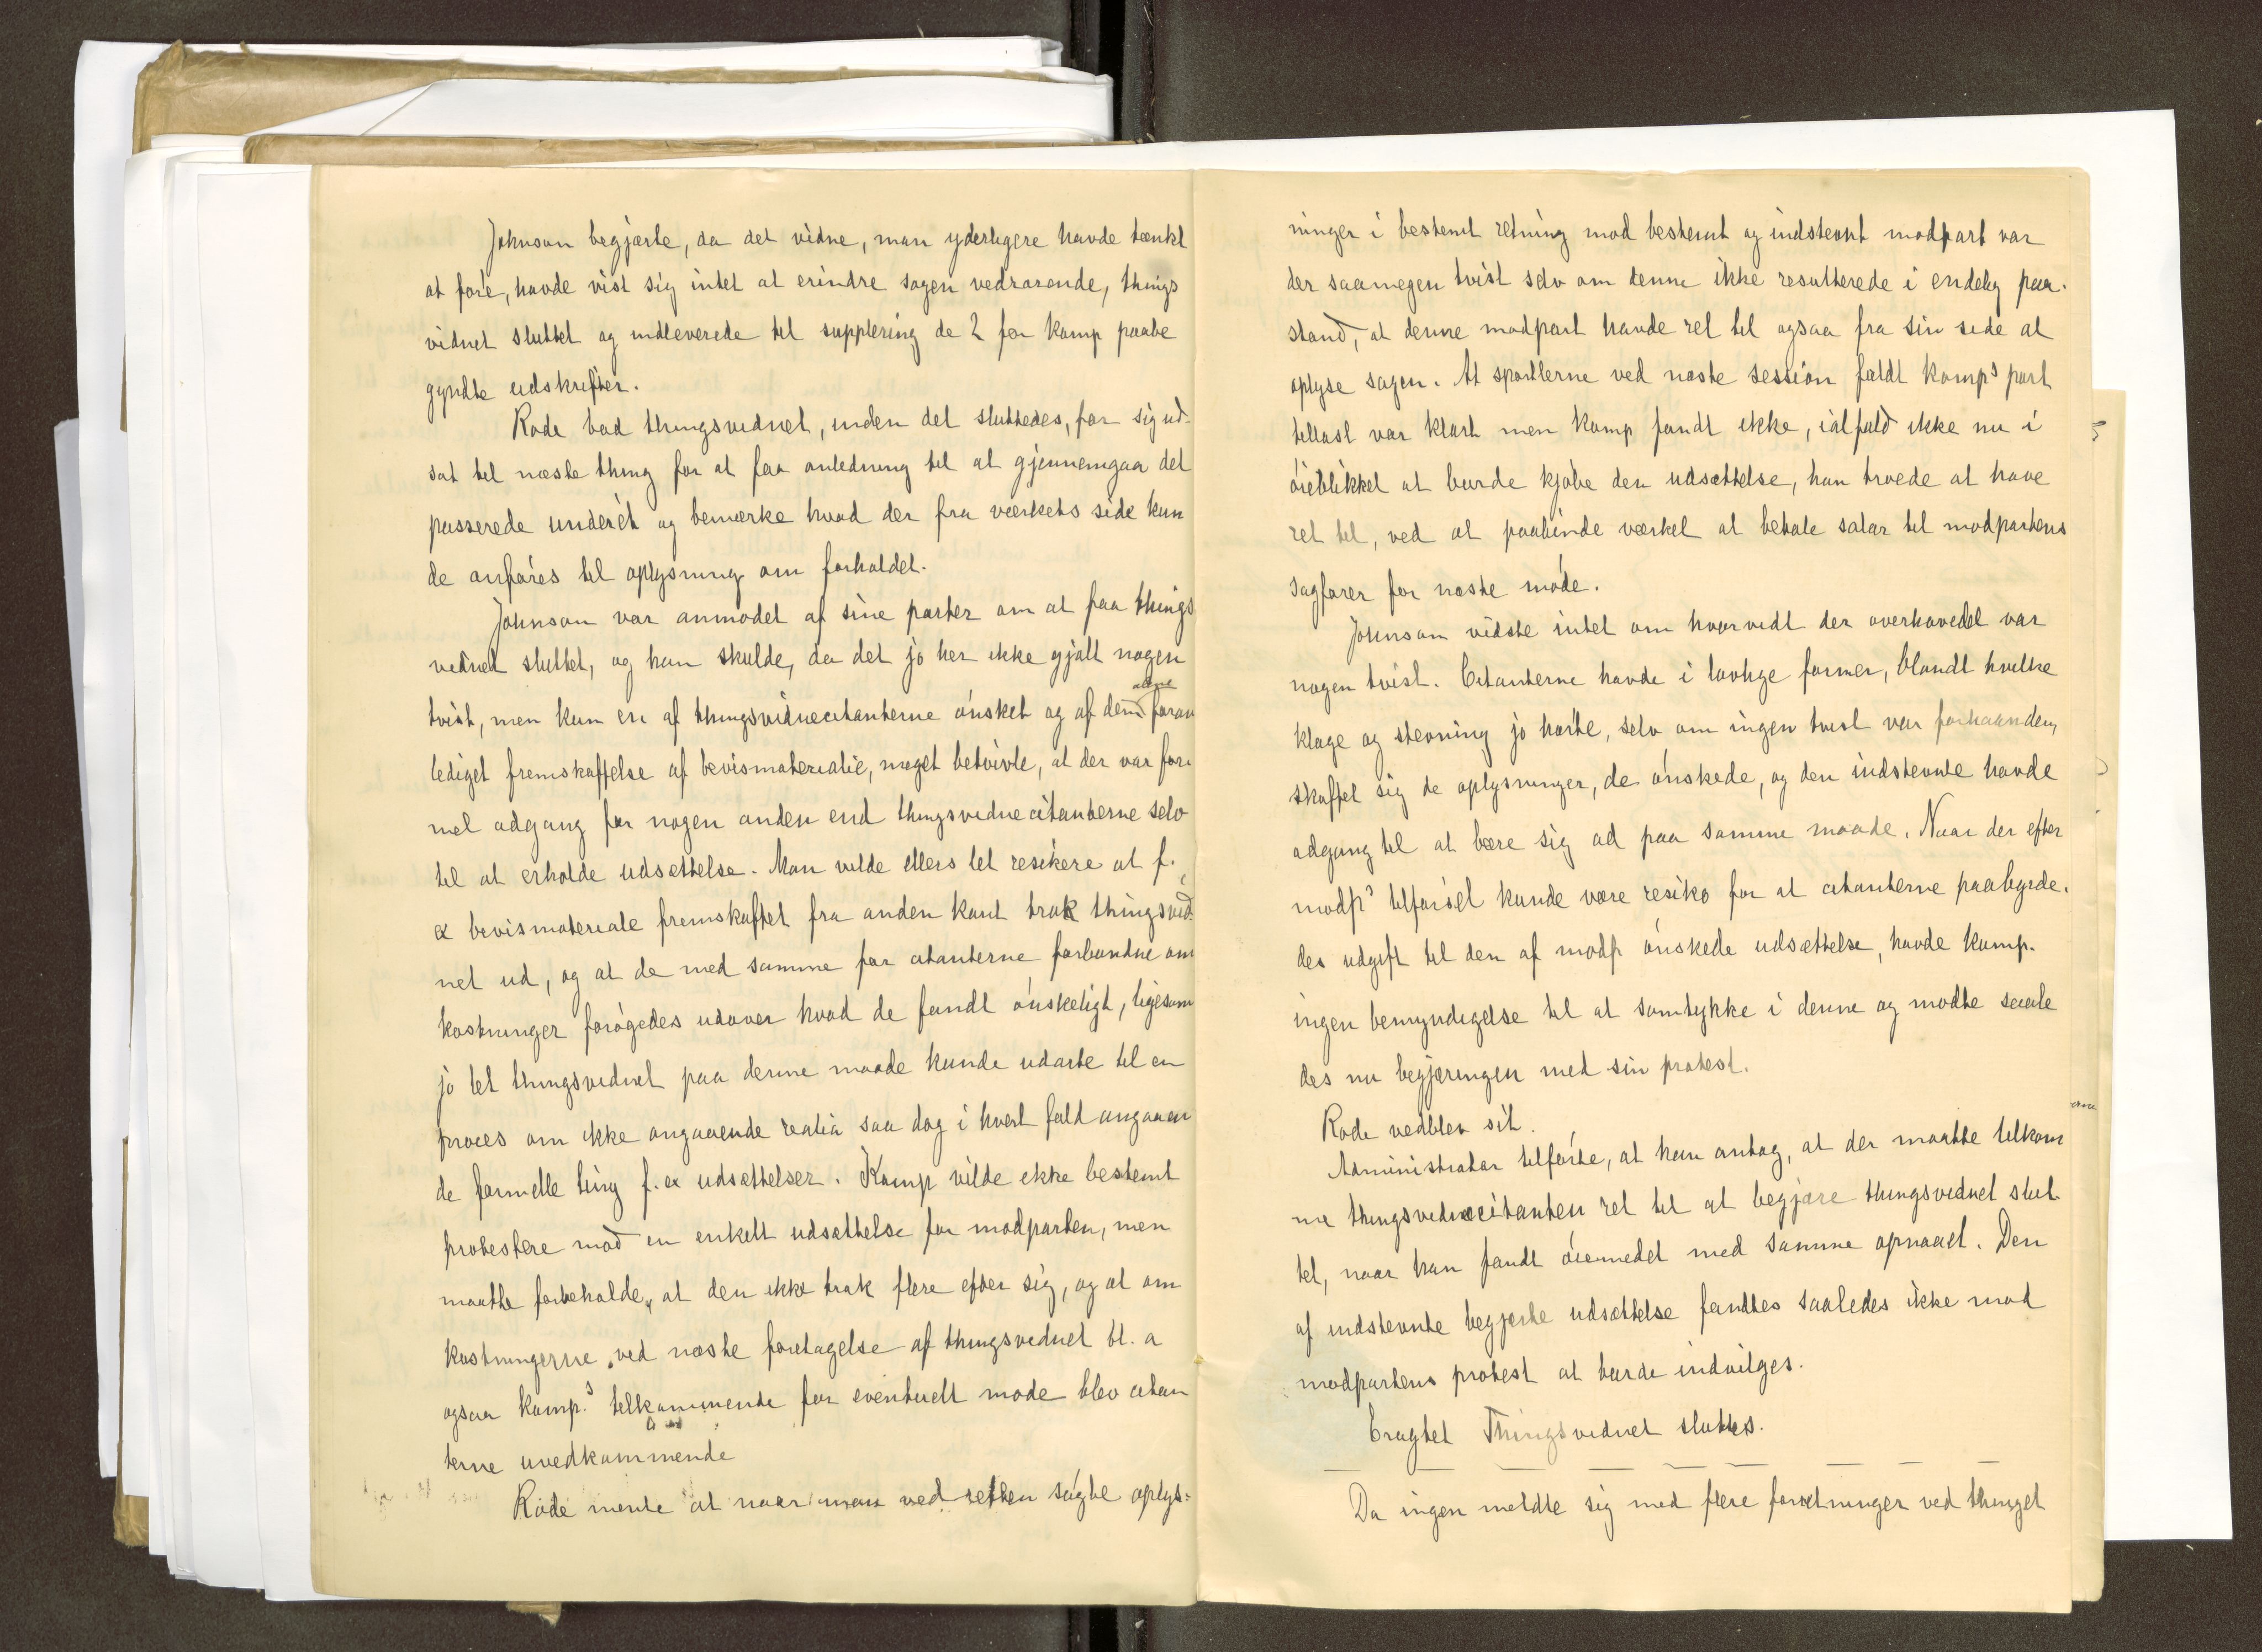 Johnson begjærte, da det vidne, man yderligere havde tænkt
at føre, havde vist sig intet at erindre sagen vedrørende, things
vidnet sluttet og indleverede til supplering de 2 før Komp paabe
gyndte udskrifter.
Rode bad thingsvidnet, inden det sluttedes, for sig ud-
sat til næste thing for at faa anledning til at gjennemgaa det
passerede underét og bemærke hvad der fra værkets side kun
de anføres til oplysning om forholdet.
Johnson var anmodet af sine parter om at faa things
vidnet sluttet, og han skulde, da det jo her ikke gjalt nogen
tvist, men kun en af thingsvidnecitanterne ønsket og af dem alene foran
lediget fremskaffelse af bevismaterialie, meget betvivle, at der var for-
mel adgang for nogen anden end thingsvidnecitanterne selv
til at erholde udsættelse. Man vilde ellers let resikere at f.
ex bevismateriale fremskaffet fra anden kant trak thingsvid-
net ud, og at de med samme for citanterne forbundne om
kostninger forøgedes udover hvad de fandt ønskeligt, ligesom
jo let thingsvidnet paa denne maade kunde udarte til en
proces om ikke angaaende realia saa dog i hvert fald angaaen
de formelle ting f. ex udsættelser. Komp vilde ikke bestemt
protestere mod en enkelt udsættelse for modparten, men
maatte forbeholde, at den ikke trak flere efter sig, og at om
kostningerne ved næste foretagelse af thingsvidnet bl. a
ogsaa komp.s tilkommende for eventuelt møde blev citan
terne uvedkommende
Rode mente at naar man ved retten søgte oplys-
ninger i bestemt retning mod bestemt og indstevnt modpart var
der saamegen tvist selv om denne ikke resulterede i endelig paa-
stand, at denne modpart havde ret til ogsaa fra sin side at
oplyse sagen. At sportlerne ved næste session faldt komps part
tillast var klart men Komp fandt ikke, ialfald ikke nu i
øieblikket at burde kjøbe den udsættelse, han troede at have
ret til, ved at paabinde værket at betale salær til modpartens
sagfører for næste møde.
Johnson vidste intet om hvorvidt der overhovedet var
nogen tvist. Citanterne havde i lovlige former, blandt hvilke
klage og stevning jo hørte, selv om ingen tvist var forhaanden,
skaffet sig de oplysninger, de ønskede, og den indstevnte havde
adgang til at bære sig ad paa samme maade. Naar der efter
modp.s tilførsel kunde være resiko for at citanterne paabyrde-
des udgift til den af modp ønskede udsættelse, havde Komp.
ingen bemyndigelse til at samtykke i denne og mødte saale
des nu begjæringen med sin protest.
Rode vedblev sit.
Administrator tilførte, at han antog, at der maatte tilkom
me thingsvidnecitanten ret til at begjære thingsvidnet slut-
tet, naar han fandt øiemedet med samme opnaaet. Den
af indstevnte begjærte udsættelse fandtes saaledes ikke mod
modpartens protest at burde indvilges.
Eragtet Thingsvidnet sluttes.
Da ingen meldte sig med flere forretninger ved thinget